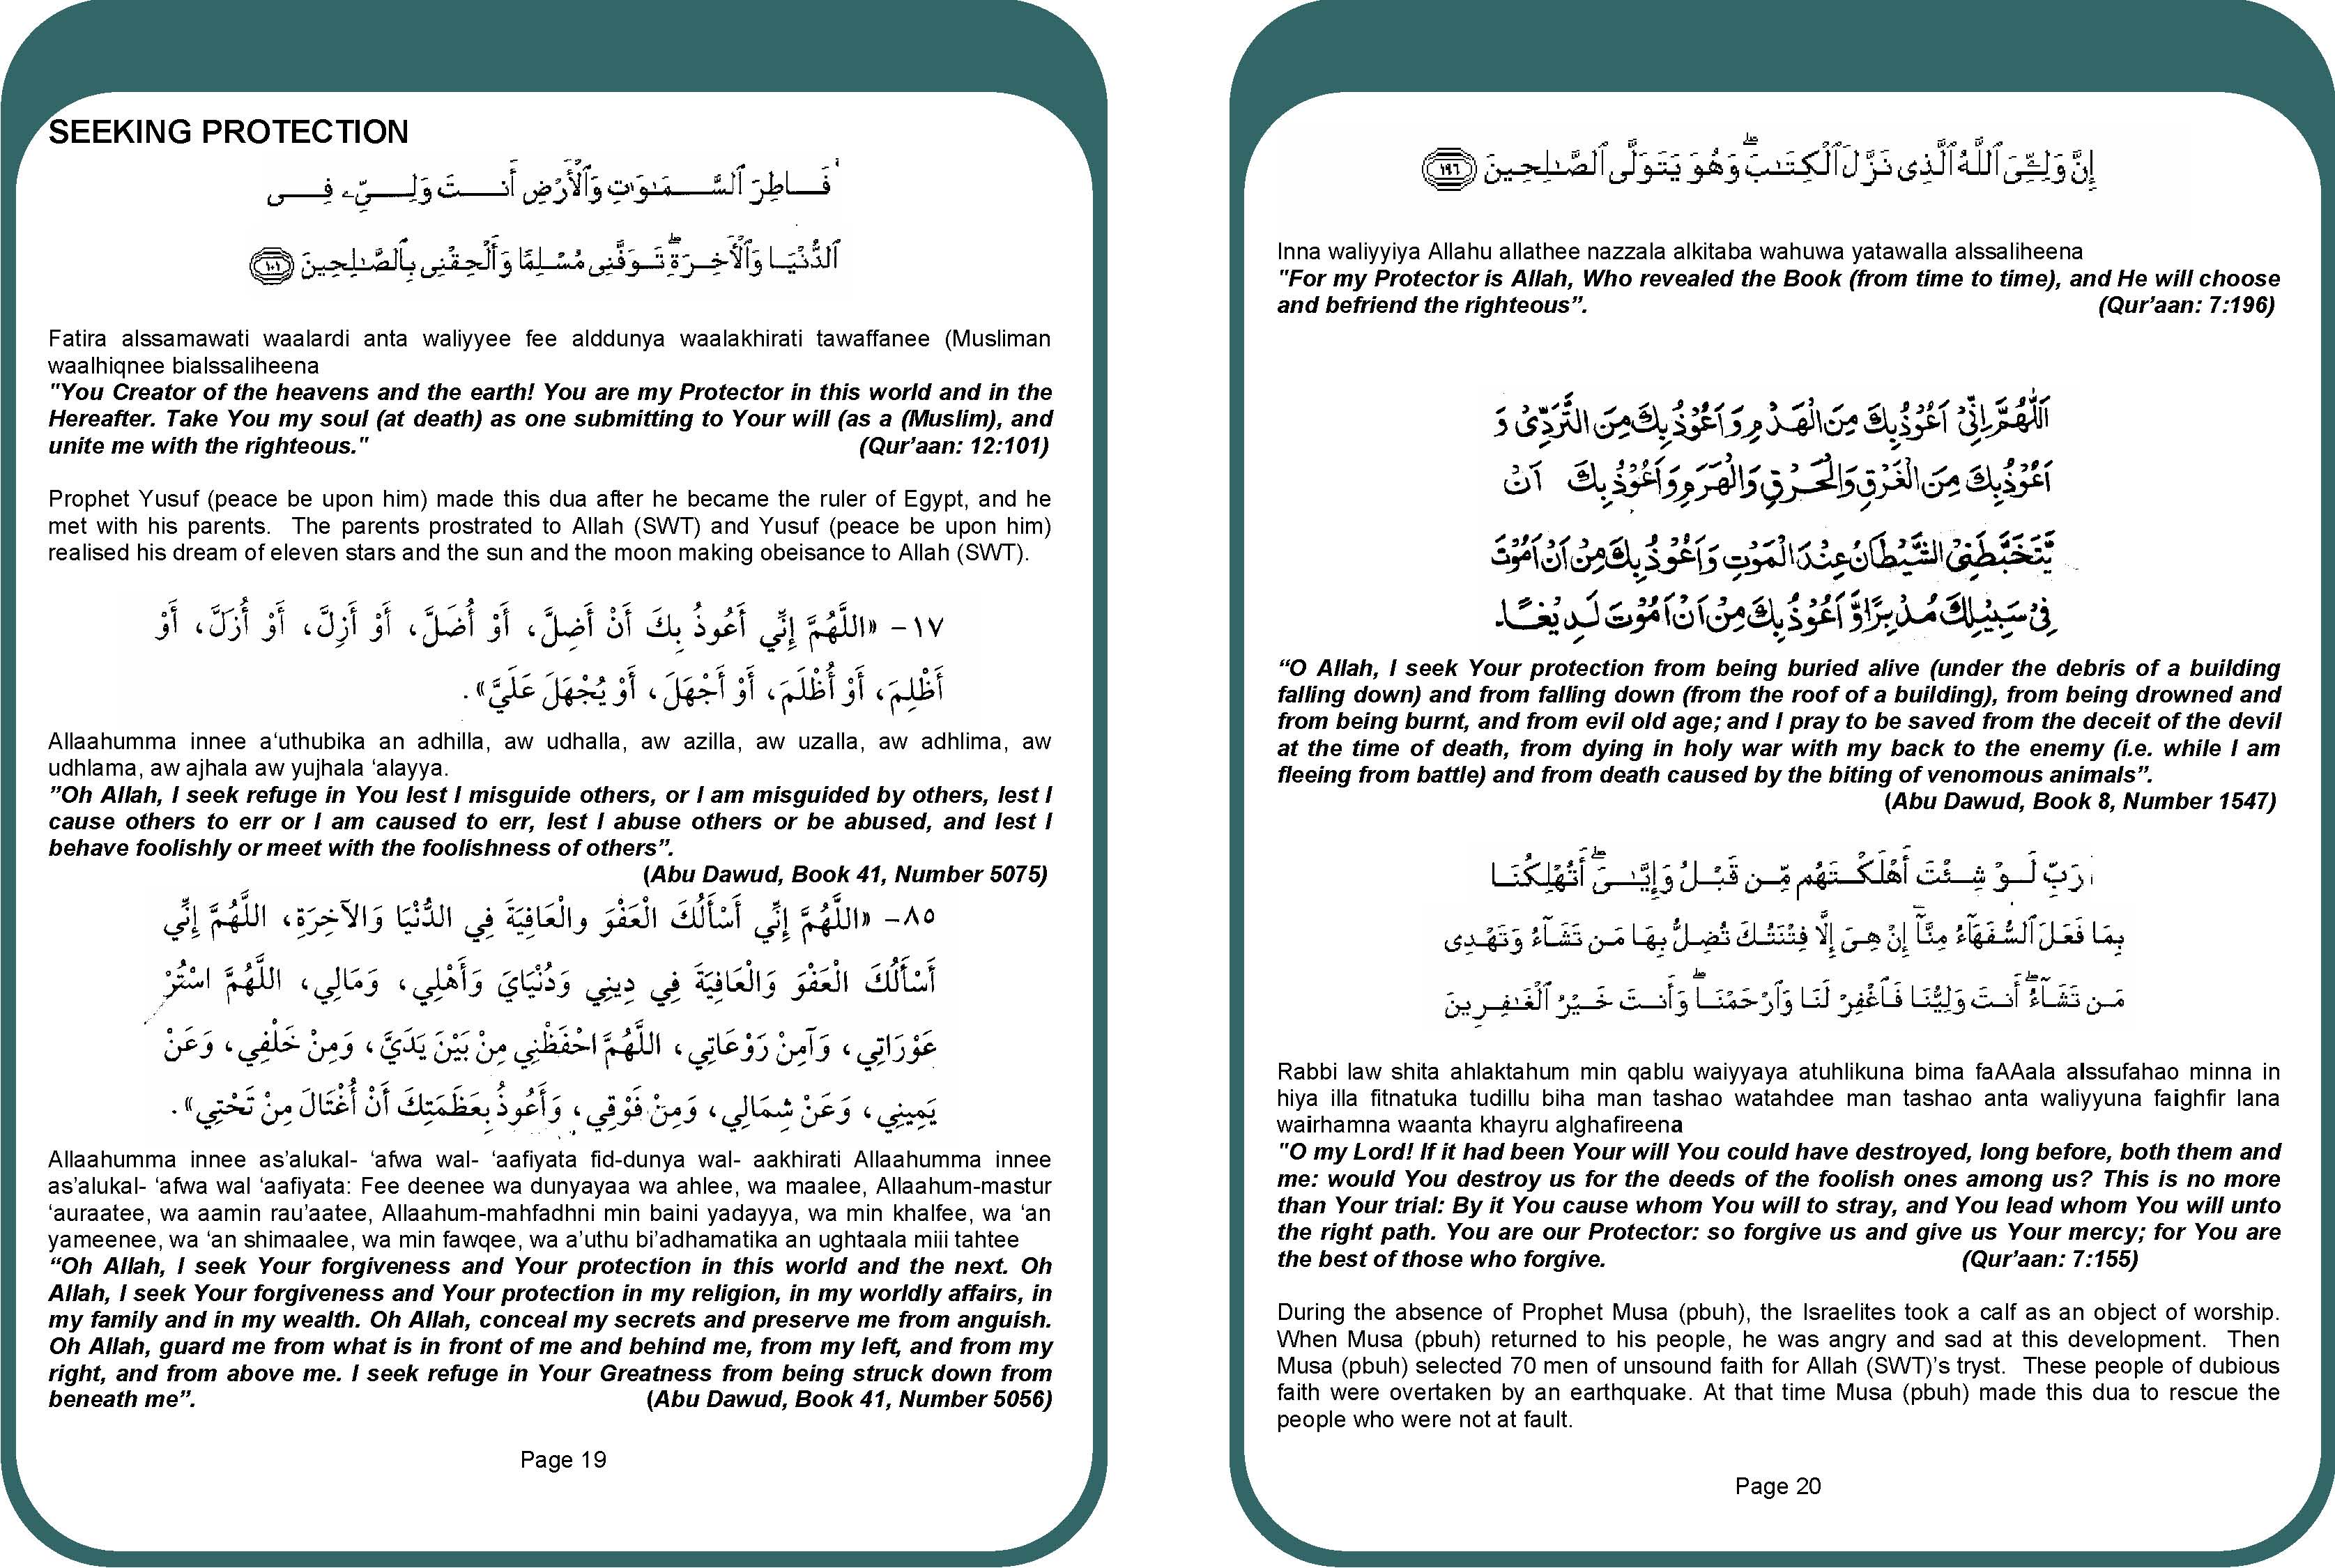 SEEKING PROTECTION
فَاطِرَ ٱلسَّمَـٰوَٰتِ وَٱلْأَرْضِ أَنتَ وَلِـىِّۦ فِى
ٱلدُّنْيَا وَٱلْأَخِرَةِۖ تَوَفَّنِى مُسْلِمًا وَأَلْحِقْنِى بِٱلصَّـٰلِحِينَ ١٠١
Fatira alssamawati waalardi anta waliyyee fee alddunya waalakhirati tawaffanee (Musliman
waalhiqnee bialssaliheena
"You Creator of the heavens and the earth! You are my Protector in this world and in the
Hereafter. Take You my soul (at death) as one submitting to Your will (as a (Muslim), and
unite me with the righteous." (Qur’aan: 12:101)
Prophet Yusuf (peace be upon him) made this dua after he became the ruler of Egypt, and he
met with his parents. The parents prostrated to Allah (SWT) and Yusuf (peace be upon him)
realised his dream of eleven stars and the sun and the moon making obeisance to Allah (SWT).
١٧ – «اللَّهُمَّ إِنِّي أَعُوذُ بِكَ أَنْ أَضِلَّ، أَوْ أُضَلَّ، أَوْ أَزِلَّ، أَوْ أُزَلَّ، أَوْ
أَظْلِمَ، أَوْ أُظْلَمَ، أَوْ أَجْهَلَ، أَوْ يُجْهَلَ عَلَيَّ».
Allaahumma innee a‘uthubika an adhilla, aw udhalla, aw azilla, aw uzalla, aw adhlima, aw
udhlama, aw ajhala aw yujhala ‘alayya.
”Oh Allah, I seek refuge in You lest I misguide others, or I am misguided by others, lest I
cause others to err or I am caused to err, lest I abuse others or be abused, and lest I
behave foolishly or meet with the foolishness of others”.
(Abu Dawud, Book 41, Number 5075)
٨٥– «اللَّهُمَّ إِنِّي أَسْأَلُكَ الْعَفْوَ والْعَافِيَةَ فِي الدُّنْيَا وَالآخِرَةِ، اللَّهُمَّ إِنِّي
أَسْأَلُكَ الْعَفْوَ وَالْعَافِيَةَ فِي دِينِي وَدُنْيَايَ وَأَهْلِي، وَمَالِي، اللَّهُمَّ اسْتُرْ
عَوْرَاتِي، وَآمِنْ رَوْعَاتِي، اللَّهُمَّ احْفَظْنِي مِنْ بَيْنَ يَدَيَّ، وَمِنْ خَلْفِي، وَعَنْ
يَمِينِي، وَعَنْ شِمَالِي، وَمِنْ فَوْقِي، وَأَعُوذُ بِعَظَمَتِكَ أَنْ أُغْتَالَ مِنْ تَحْتِي».
Allaahumma innee as’alukal- ‘afwa wal- ‘aafiyata fid-dunya wal- aakhirati Allaahumma innee
as’alukal- ‘afwa wal ‘aafiyata: Fee deenee wa dunyayaa wa ahlee, wa maalee, Allaahum-mastur
‘auraatee, wa aamin rau’aatee, Allaahum-mahfadhni min baini yadayya, wa min khalfee, wa ‘an
yameenee, wa ‘an shimaalee, wa min fawqee, wa a’uthu bi’adhamatika an ughtaala miii tahtee
“Oh Allah, I seek Your forgiveness and Your protection in this world and the next. Oh
Allah, I seek Your forgiveness and Your protection in my religion, in my worldly affairs, in
my family and in my wealth. Oh Allah, conceal my secrets and preserve me from anguish.
Oh Allah, guard me from what is in front of me and behind me, from my left, and from my
right, and from above me. I seek refuge in Your Greatness from being struck down from
beneath me”. (Abu Dawud, Book 41, Number 5056)
Page 19
إِنَّ وَلِـِّۧىَ ٱللَّهُ ٱلَّذِى نَزَّلَ ٱلْكِتَـٰبَۖ وَهُوَ يَتَوَلَّى ٱلصَّـٰلِحِينَ ١٩٦
Inna waliyyiya Allahu allathee nazzala alkitaba wahuwa yatawalla alssaliheena
"For my Protector is Allah, Who revealed the Book (from time to time), and He will choose
and befriend the righteous”. (Qur’aan: 7:196)
اَللّٰهُمَّ اِنِّىْ اَعُوْذُ بِكَ مِنَ الْهَدْمِ وَاَعُوْذُ بِكَ مِنَ التَّرَدِّىْ وَ
اَعُوْذُ بِكَ مِنَ الْغَرَقِ وَالْحَرَقِ وَالْهَرَمِ وَاَعُوْذُ بِكَ اَنْ
يَّتَخَبَّطَنِىَ الشَّيْطَانُ عِنْدَ الْمَوْتِ وَاَعُوْذُ بِكَ مِنْ اَنْ اَمُوْتَ
فِىْ سَبِيْلِكَ مُدْبِرًا وَّ اَعُوْذُ بِكَ مِنْ اَنْ اَمُوْتَ لَدِيْغًا۔
“O Allah, I seek Your protection from being buried alive (under the debris of a building
falling down) and from falling down (from the roof of a building), from being drowned and
from being burnt, and from evil old age; and I pray to be saved from the deceit of the devil
at the time of death, from dying in holy war with my back to the enemy (i.e. while I am
fleeing from battle) and from death caused by the biting of venomous animals”.
(Abu Dawud, Book 8, Number 1547)
رَبِّ لَوْ شِئْتَ أَهْلَكْتَهُم مِّن قَبْلُ وَإِيَّـٰىَۖ أَتُهْلِكُنَا
بِمَا فَعَلَ ٱلسُّفَهَآءُ مِنَّآۖ إِنْ هِىَ إِلَّا فِتْنَتُكَ تُضِلُّ بِهَا مَن تَشَآءُ وَتَهْدِى
مَن تَشَآءُۖ أَنتَ وَلِيُّنَا فَٱغْفِرْ لَنَا وَٱرْحَمْنَاۖ وَأَنتَ خَيْرُ ٱلْغَـٰفِرِينَ
Rabbi law shita ahlaktahum min qablu waiyyaya atuhlikuna bima faAAala alssufahao minna in
hiya illa fitnatuka tudillu biha man tashao watahdee man tashao anta waliyyuna faighfir lana
wairhamna waanta khayru alghafireena
"O my Lord! If it had been Your will You could have destroyed, long before, both them and
me: would You destroy us for the deeds of the foolish ones among us? This is no more
than Your trial: By it You cause whom You will to stray, and You lead whom You will unto
the right path. You are our Protector: so forgive us and give us Your mercy; for You are
the best of those who forgive. (Qur’aan: 7:155)
During the absence of Prophet Musa (pbuh), the Israelites took a calf as an object of worship.
When Musa (pbuh) returned to his people, he was angry and sad at this development. Then
Musa (pbuh) selected 70 men of unsound faith for Allah (SWT)’s tryst. These people of dubious
faith were overtaken by an earthquake. At that time Musa (pbuh) made this dua to rescue the
people who were not at fault.
Page 20